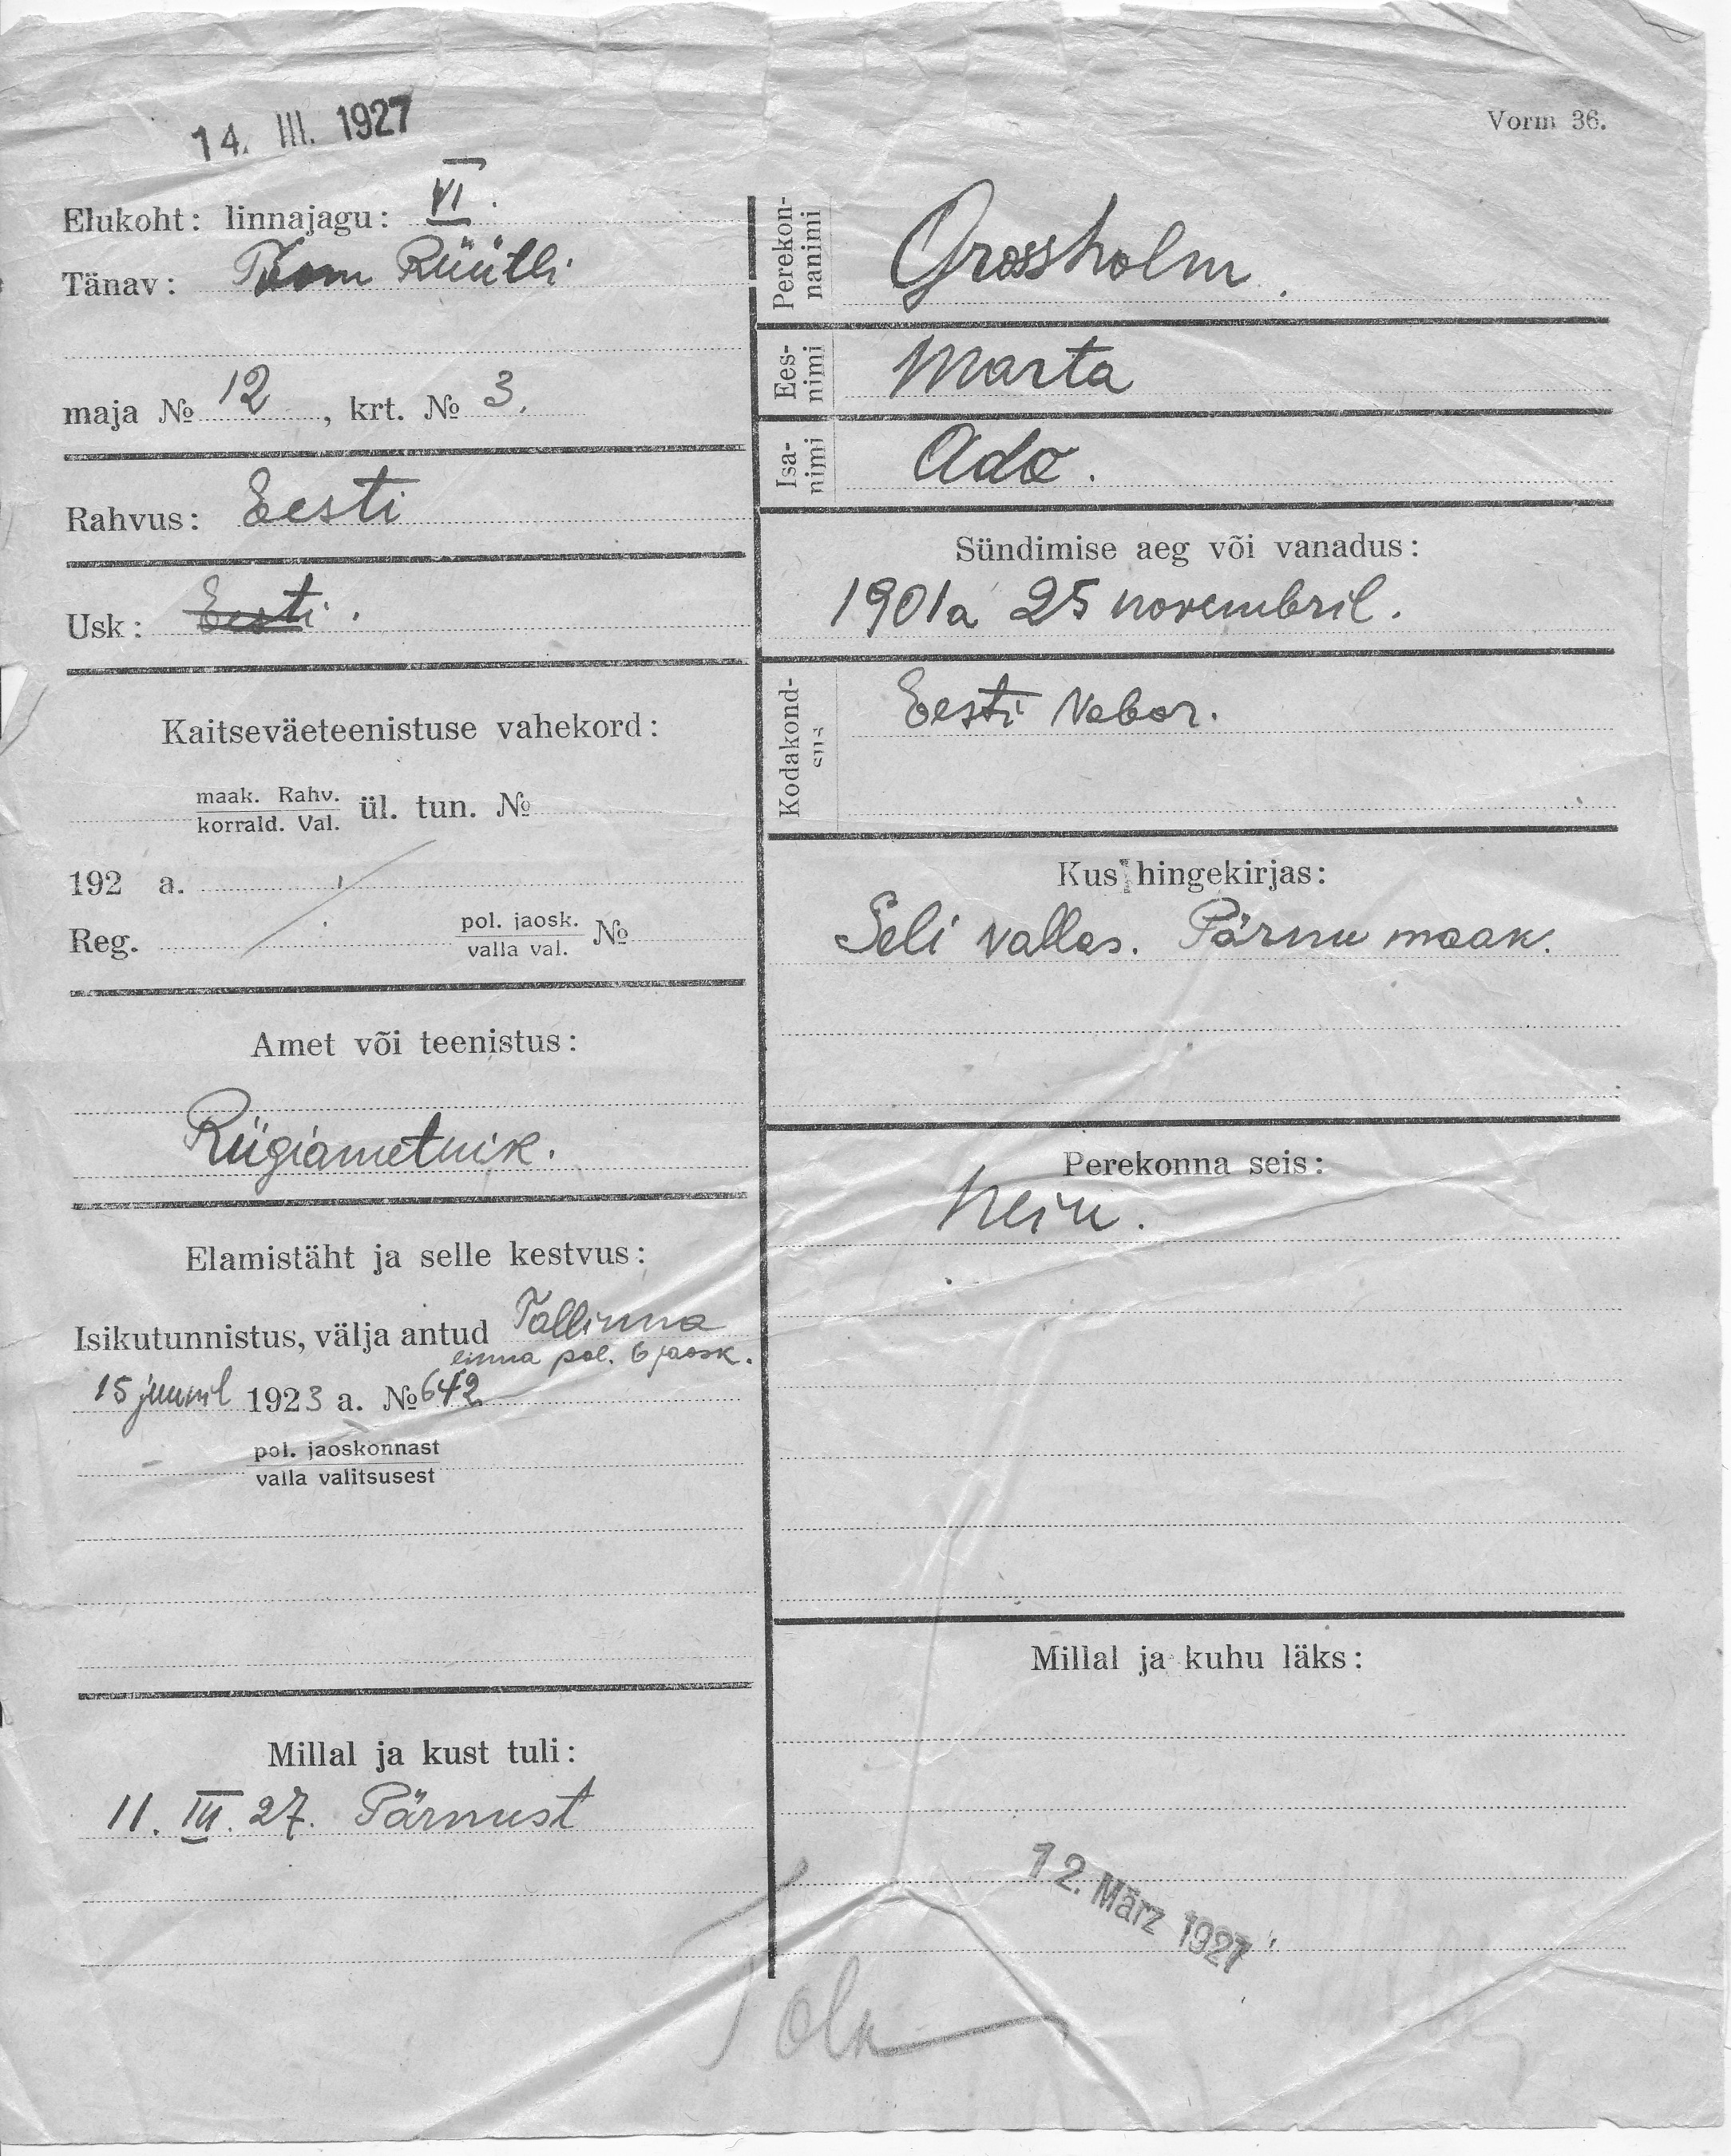 14. III. 1927
Vorm 36.
Elukoht: linnajagu: VI.
Tänav: Toom Rüütli
maja № 12, krt. № 3.
Rahvus: Eesti
Usk: Eesti.
Kaitseväeteenistuse vahekord:
maak. Rahv.
korrald. Val. ül. tun. №
192 a.
Reg. pol. jaosk. №
valla val.
Amet või teenistus:
Riigiametnik.
Elamistäht ja selle kestvus:
Isikutunnistus, välja antud Tallinna
linna pol. 6 jaosk.
15 juunil 1923 a. № 642
pol. jaoskonnast
valla valitsusest
Millal ja kust tuli:
11. III. 27. Pärnust
Perekon-
nanimi Grossholm.
Ees-
nimi Marta
Isa-
nimi Ado.
Sündimise aeg või vanadus:
1901a 25 novembril.
Kodakond-
sus Eesti Vabar.
Kus hingekirjas:
Seli vallas. Pärnu maak.
Perekonna seis:
Neiu.
Millal ja kuhu läks:
12. März 1927